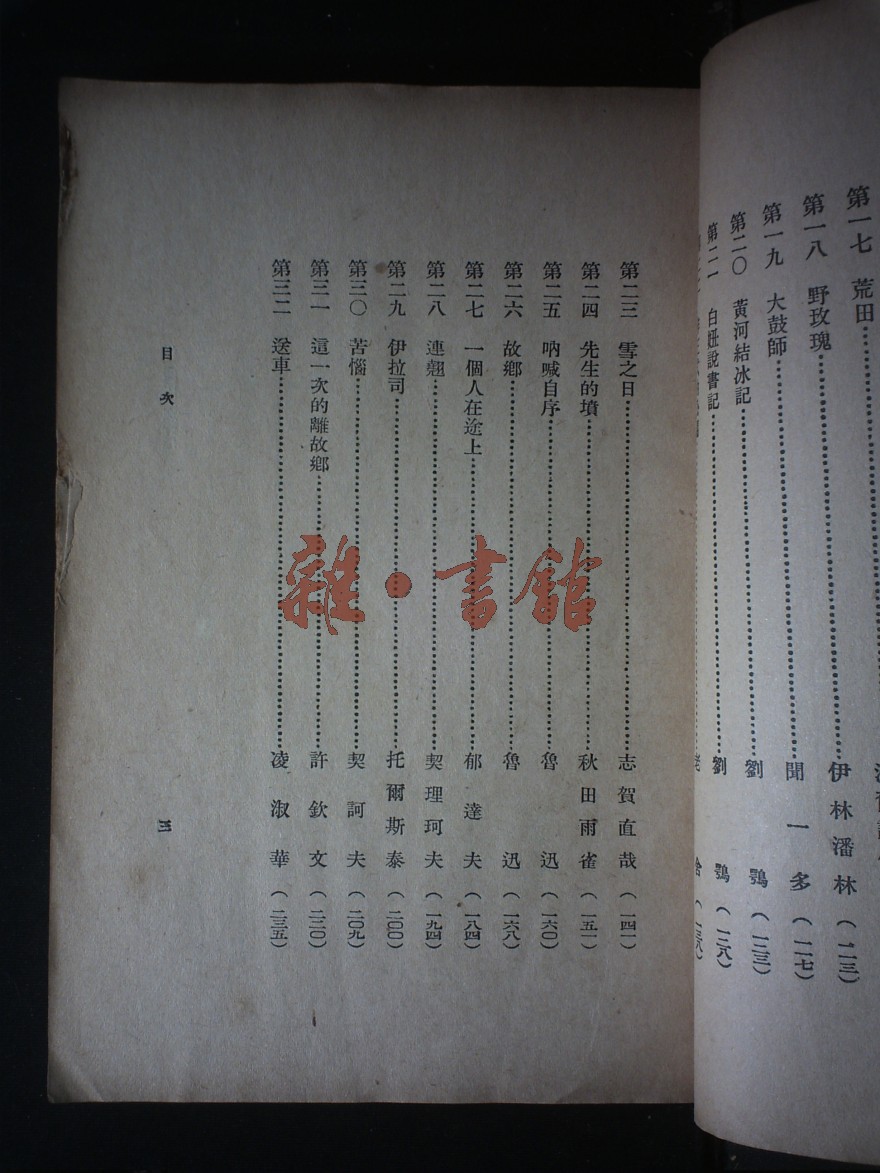 第一七 荒田
第一八 野玫瑰 伊林潘林 (一二三)
第一九 大鼓師 聞一多 (一一七)
第二〇 黃河結冰記 劉鶚 (一二三)
第二一 白妞說書記 劉鶚 (一二八)
第二三 雪之日 志賀直哉 (一四一)
第二四 先生的墳 秋田雨雀 (一五一)
第二五 吶喊自序 魯迅 (一六〇)
第二六 故鄉 魯迅 (一六八)
第二七 一個人在途上 郁達夫 (一八四)
第二八 連翹 契理珂夫 (一九四)
第二九 伊拉司 托爾斯泰 (二〇〇)
第三〇 苦惱 契訶夫 (二〇九)
第三一 這一次的離故鄉 許欽文 (二二〇)
第三二 送車 凌淑華 (二三五)
目次
三
雜·書館